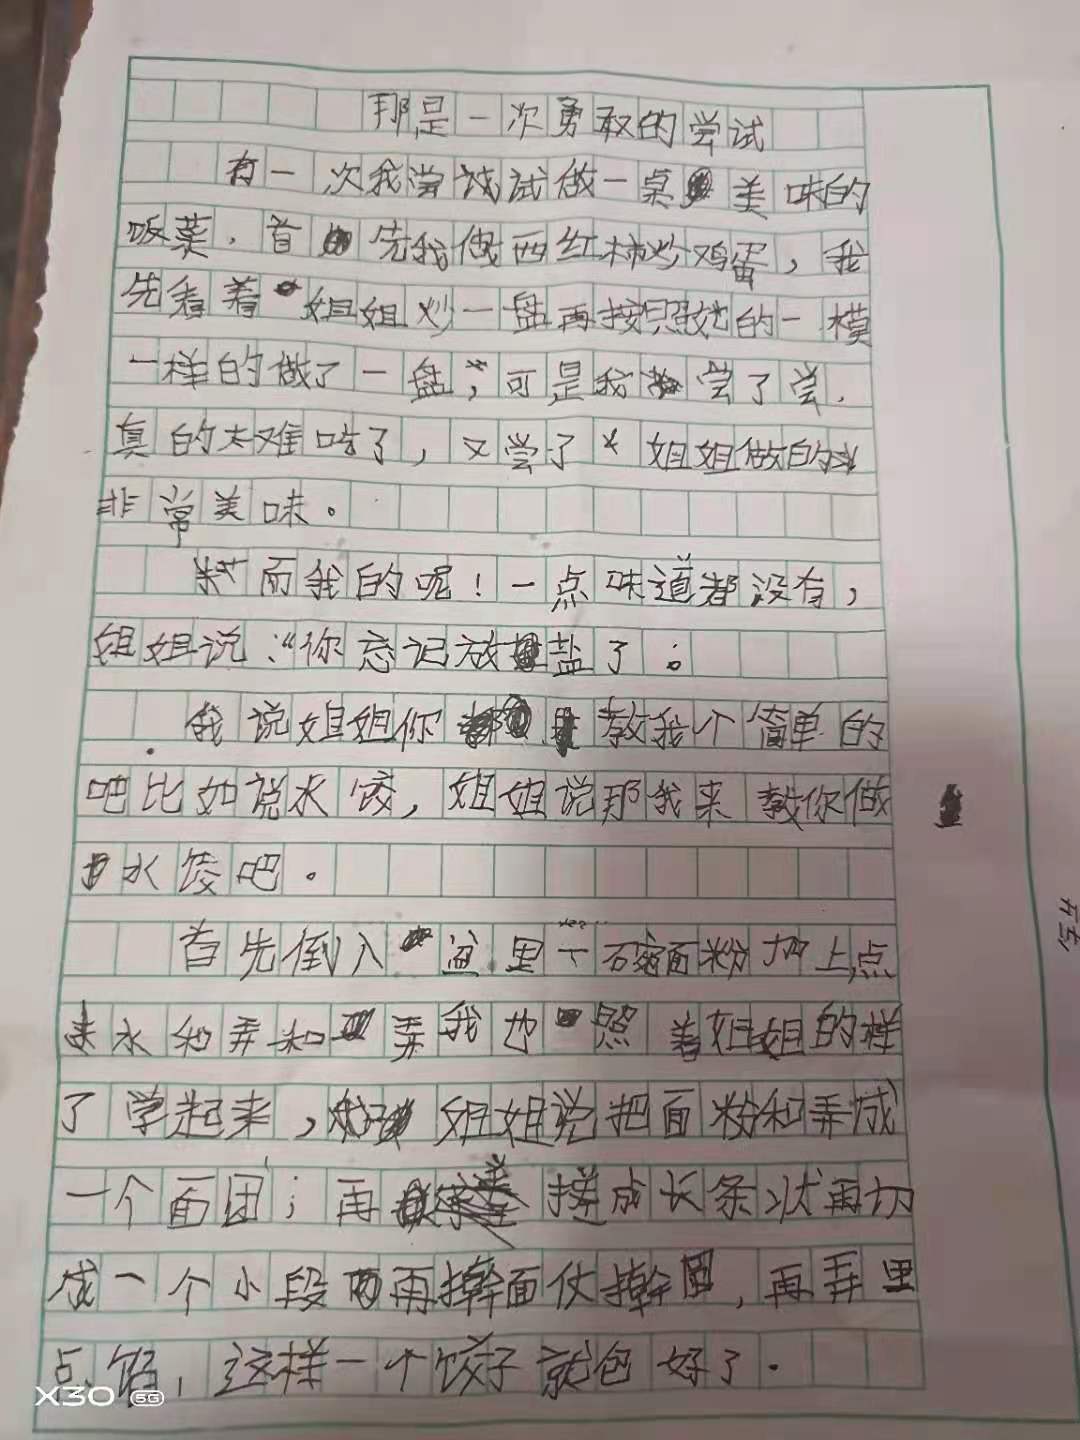 那是一次勇敢的尝试
有一次我尝试做一桌美味的
饭菜.首先我做西红柿炒鸡蛋,我
先看着姐姐炒一盘再按照她的一模
一样的做了一盘,可是我尝了尝.
真的太难吃了,又尝了姐姐做的
非常美味。
然而我的呢!一点味道都没有,
姐姐说:“你忘记放盐了。
我说姐姐你教我个简单的
吧比如说水饺,姐姐说那我来教你做
水饺吧。
首先倒入盆里一碗面粉加上点
水和弄和弄我也照着姐姐的样
了学起来,姐姐说把面粉和弄成
一个面团;再搓成长条状再切
成一个小段再擀面仗擀圆,再弄里
点馅,这样一个饺子就包好了.
X30 5G